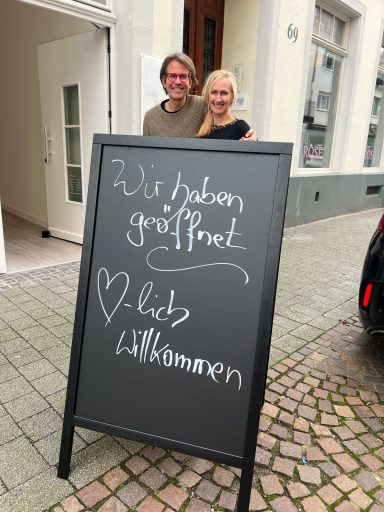 69
Wir haben
geöffnet
♡-lich
Willkommen